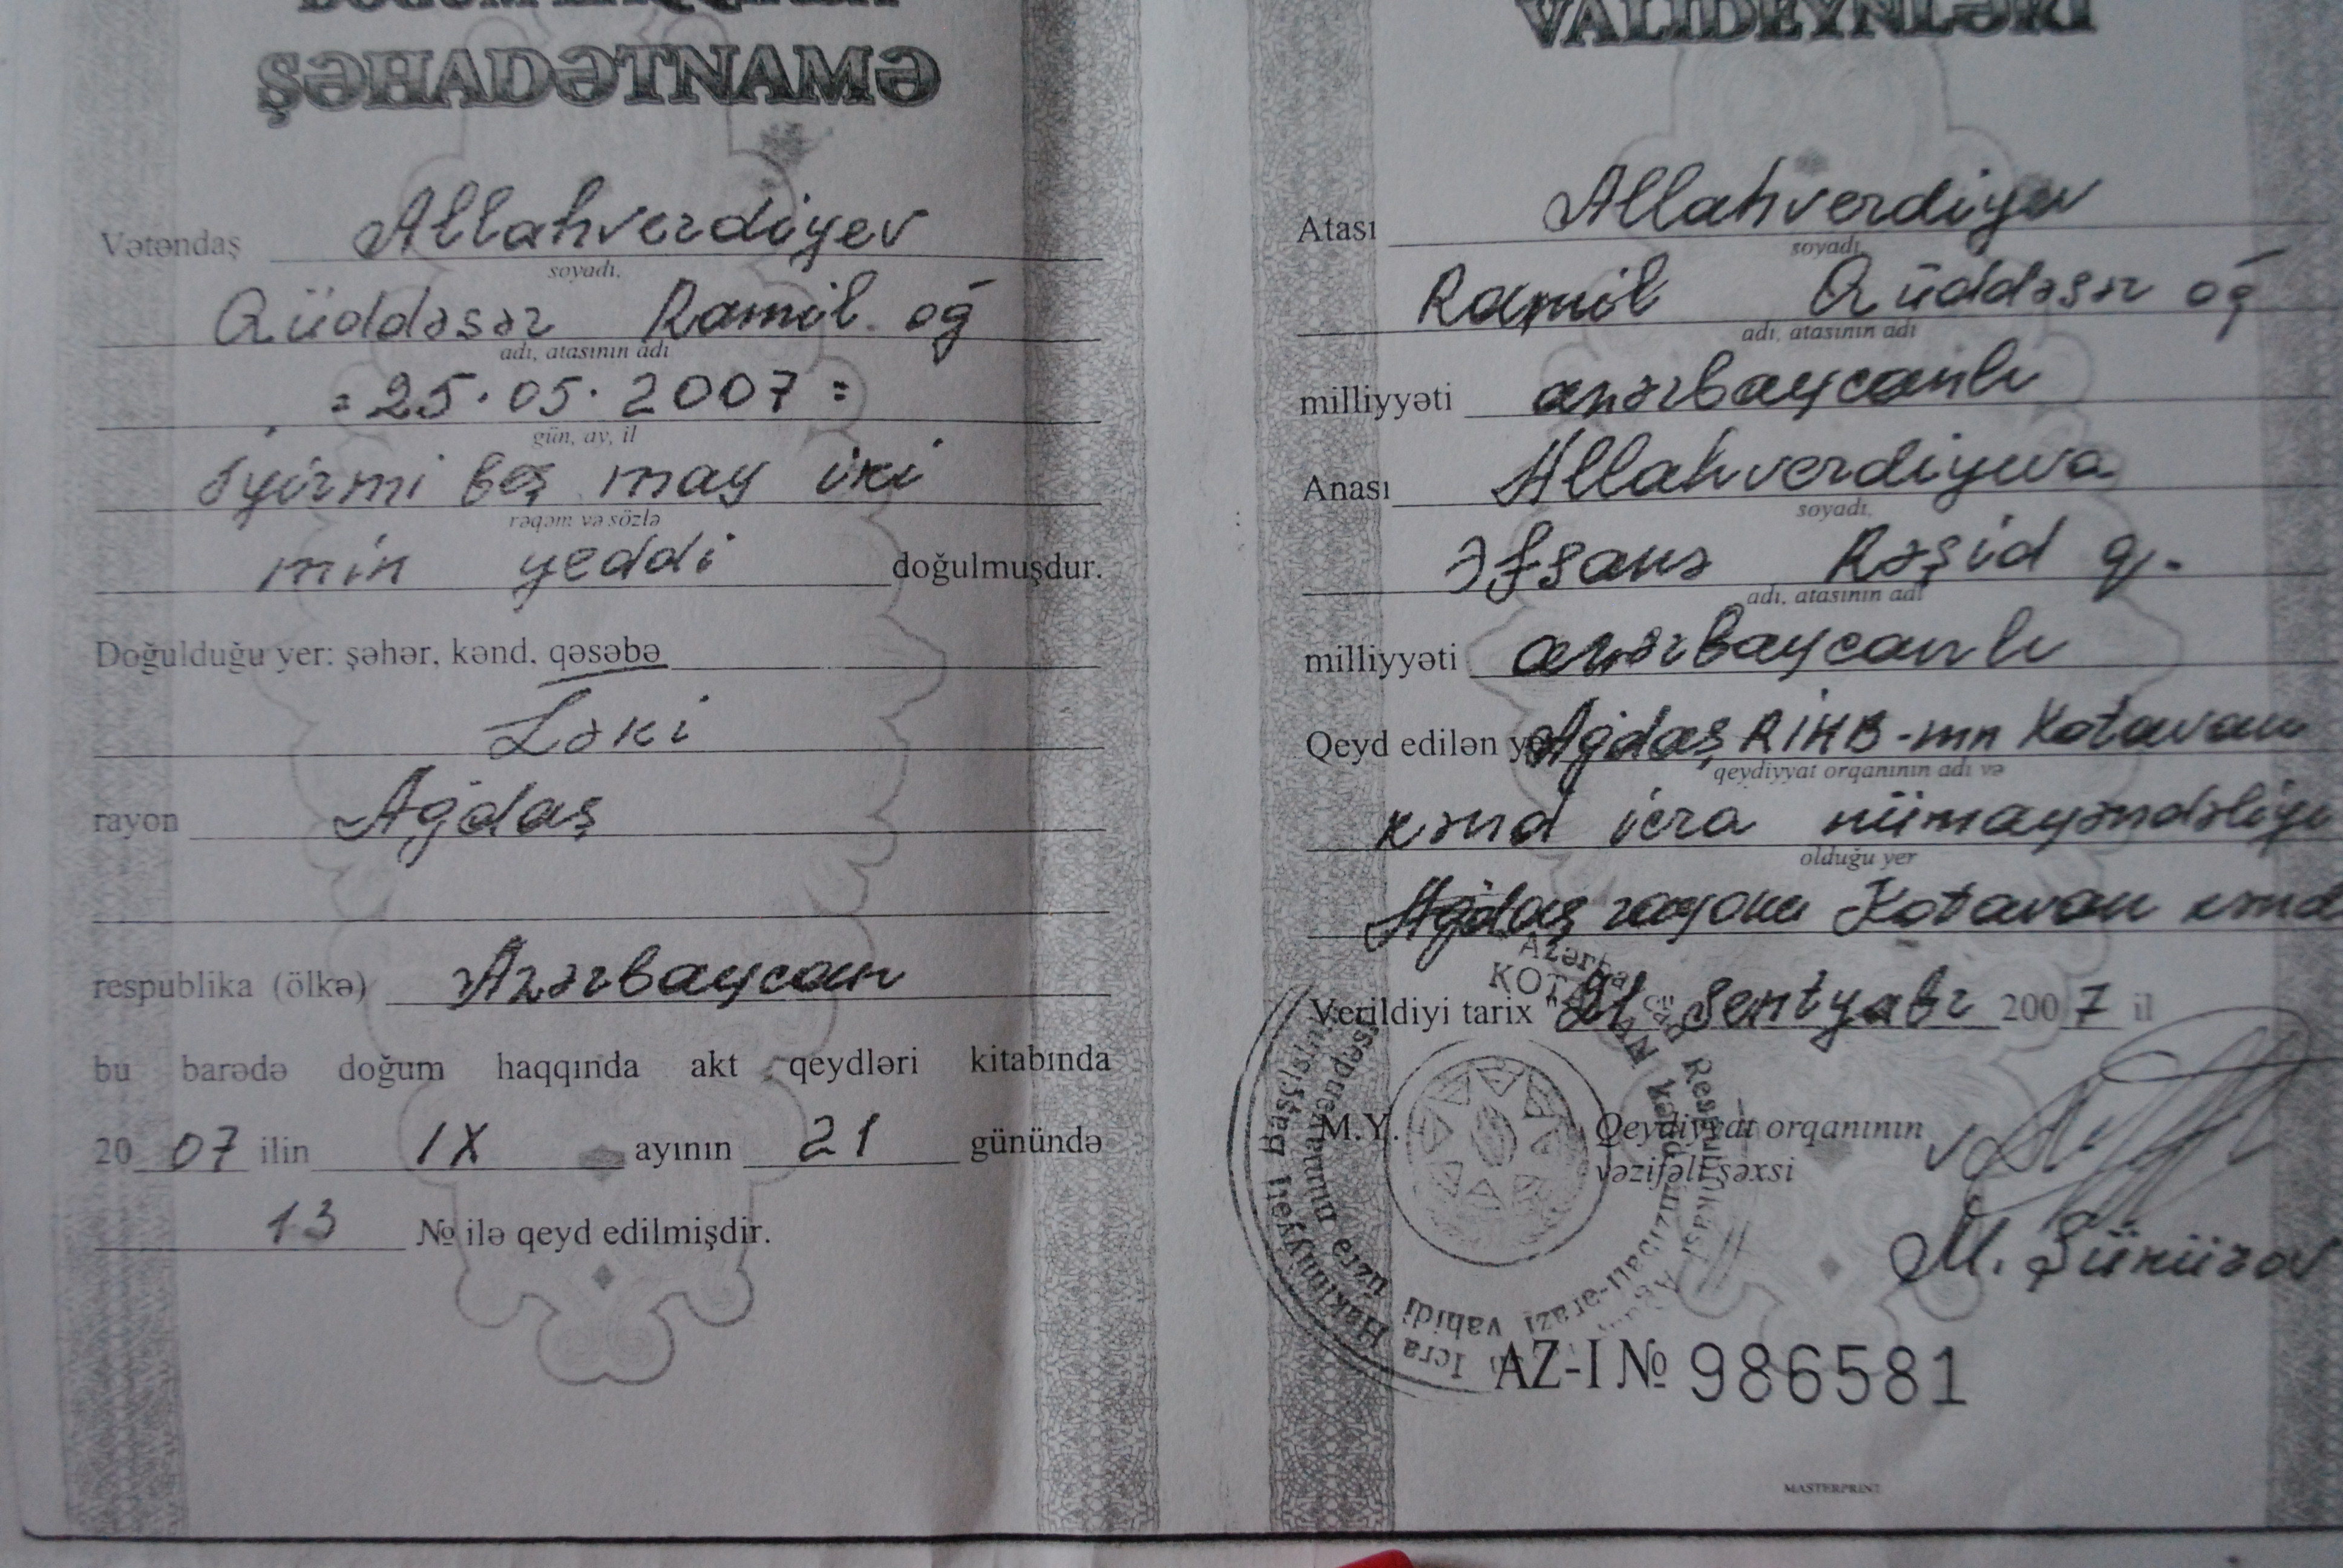 DOĞUM HAQQINDA
ŞƏHADƏTNAMƏ
Vətəndaş Allahverdiyev
soyadı,
Qüddəsər Ramil oğ
adı, atasının adı
= 25.05.2007 =
gün, ay, il
iyirmi beş may iki
rəqəm və sözlə
min yeddi doğulmuşdur.
Doğulduğu yer: şəhər, kənd, qəsəbə
Ləki
rayon Ağdaş
respublika (ölkə) Azərbaycan
bu barədə doğum haqqında akt qeydləri kitabında
2007 ilin IX ayının 21 günündə
13 № ilə qeyd edilmişdir.
VALİDEYNLƏRİ
Atası Allahverdiyev
soyadı,
Ramil Qüddəsər oğ
adı, atasının adı
milliyyəti azərbaycanlı
Anası Allahverdiyeva
soyadı,
Əfsanə Rəşid q.
adı, atasının adı
milliyyəti azərbaycanlı
Qeyd edilən yer Ağdaş RİHB-nın Kotavan
qeydiyyat orqanının adı və
kənd icra nümayəndəliyi
olduğu yer
Ağdaş rayonu Kotavan kənd
Verildiyi tarix "21 Sentyabr 2007 il
M.Y. Qeydiyyat orqanının
vəzifəli şəxsi
M. Şükürov
AZ-I № 986581
MASTERPRINT